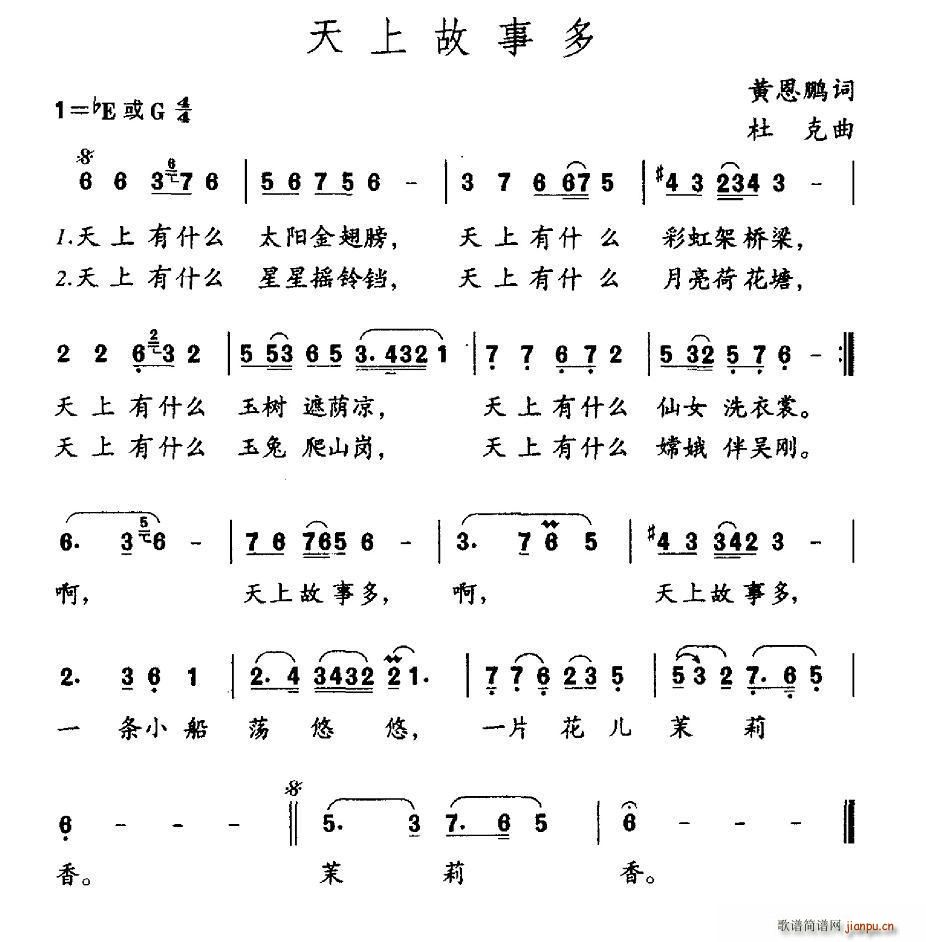 天上故事多
1=♭E或G 4/4
黄恩鹏词
杜 克曲
6 6 3 6 7 6 | 5 6 7 5 6 - | 3 7 6 6 7 5 | #4 3 2 3 4 3 - |
1.天上有什么 太阳金翅膀, 天上有什么 彩虹架桥梁,
2.天上有什么 星星摇铃铛, 天上有什么 月亮荷花塘,
2 2 6 2 3 2 | 5 5 3 6 5 3. 4 3 2 1 | 7 7 6 7 2 | 5 3 2 5 7 6 - :|
天上有什么 玉树遮荫凉, 天上有什么 仙女洗衣裳。
天上有什么 玉兔爬山岗, 天上有什么 嫦娥伴吴刚。
6. 3 5 6 - | 7 6 7 6 5 6 - | 3. 7 6 5 | #4 3 3 4 2 3 - |
啊, 天上故事多, 啊, 天上故事多,
2. 3 6 1 | 2. 4 3 4 3 2 2 1. | 7 7 6 2 3 5 | 5 3 2 7. 6 5 |
一条小船荡悠悠, 一片花儿茉莉
6 - - - || 5. 3 7. 6 5 | 6 - - - ||
香。 茉莉香。
歌谱简谱网 jianpu.cn